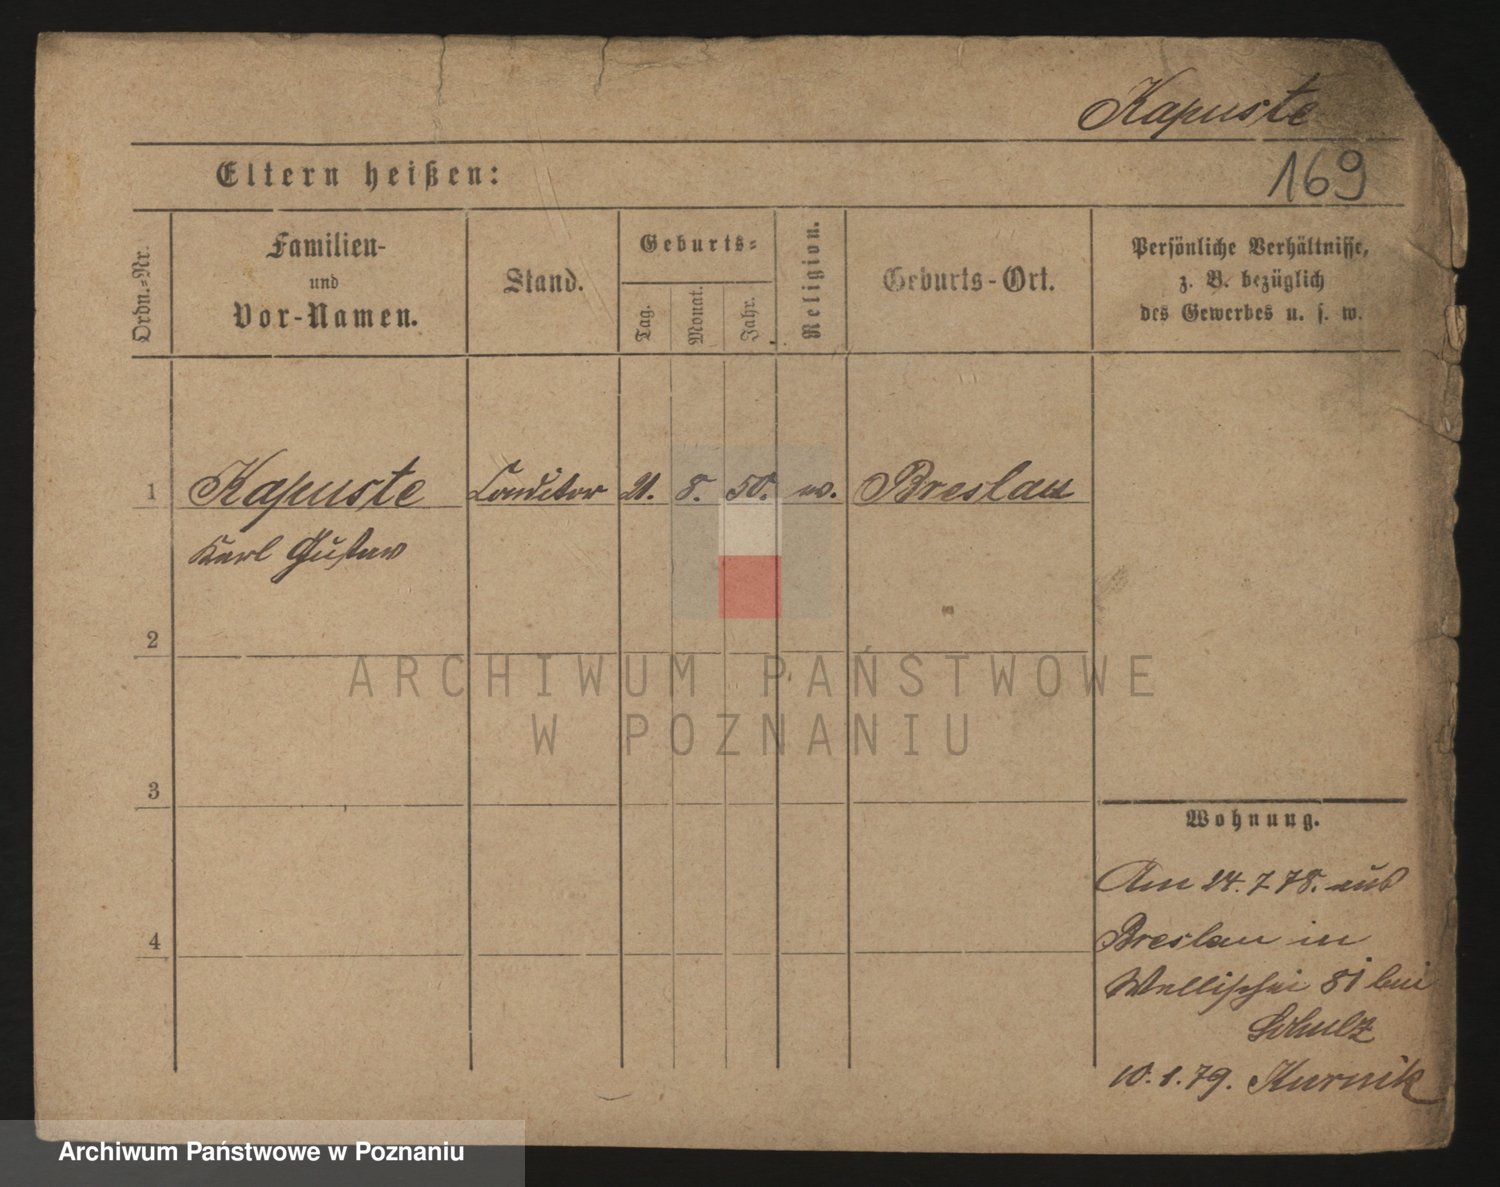 Kapuste
Eltern heißen:
169
Ordn.-Nr.
Familien-
und
Vor-Namen.
Stand.
Geburts-
Tag.
Monat.
Jahr.
Religion.
Geburts-Ort.
Persönliche Verhältnisse,
z. B. bezüglich
des Gewerbes u. s. w.
1 Kapuste Conditor 21. 8. 50. ev. Breslau
Karl Gustav
2
3
4
Wohnung.
Am 24. 7 78. aus
Breslau in
Wallischei 81 bei
Schulz
10. 1. 79. Kurnik
ARCHIWUM PAŃSTWOWE
W POZNANIU
Archiwum Państwowe w Poznaniu